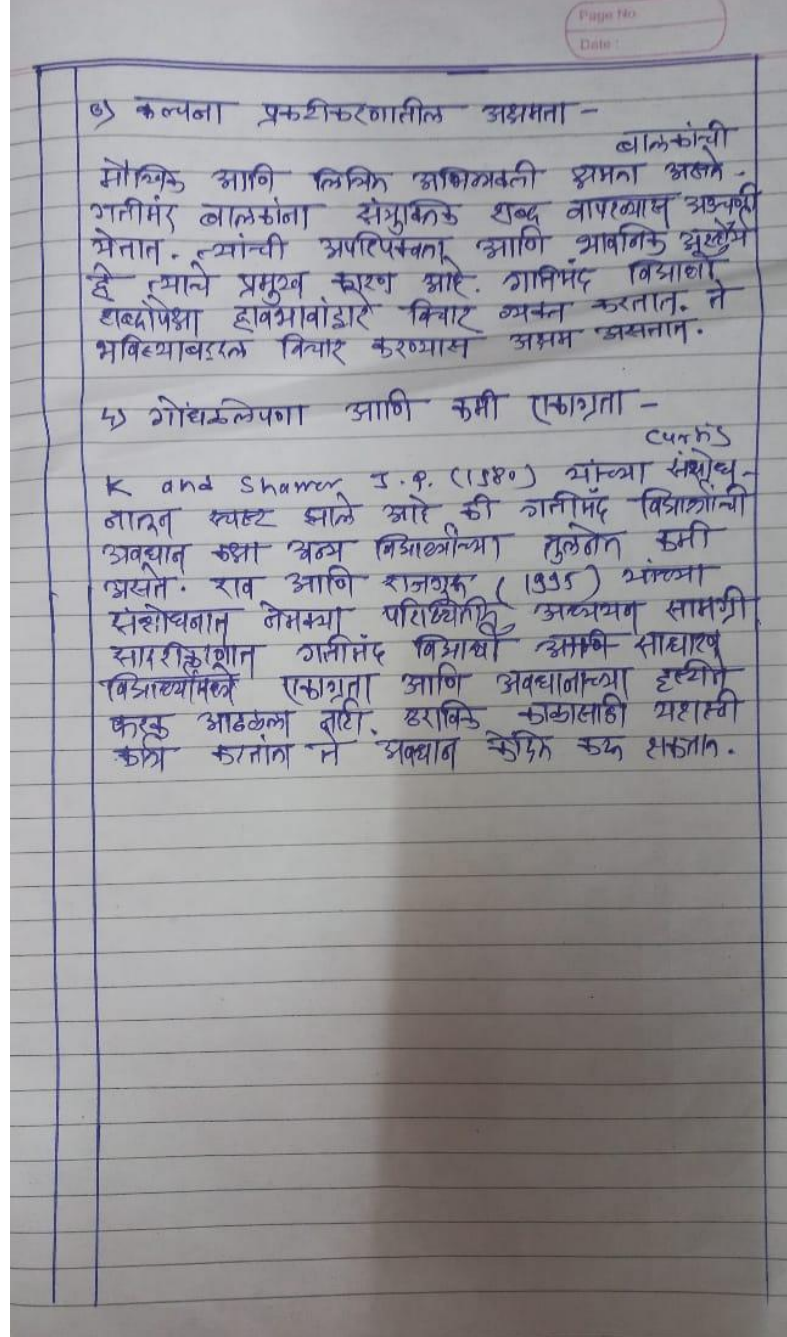 Page No
Date :
७) कल्पना प्रकटीकरणातील अक्षमता -
बालकांची
मौखिक आणि लिखित अभिव्यक्ती क्षमता असते.
गतीमंद बालकांना संयुक्तिक शब्द वापरण्यास अडचणी
येतात. त्यांची अपरिपक्वता आणि भावनिक
हे त्याचे प्रमुख कारण आहे. गतिमंद विद्यार्थी
शब्दांपेक्षा हावभावांद्वारे विचार व्यक्त करतात. ते
भविष्याबद्दल विचार करण्यास अक्षम असतात.
गोंधळलेपणा आणि कमी एकाग्रता -
K and Shawer J. P. (1980) यांच्या संशोध-
नातून स्पष्ट झाले आहे की गतीमंद विद्यार्थ्यांची
अवधान कक्षा अन्य विद्यार्थ्यांच्या तुलनेत कमी
असते. राव आणि राजगुरू (1995) यांच्या
संशोधनात नेमक्या परिस्थितीत अध्ययन सामग्री
गतीमंद विद्यार्थी आणि साधारण
विद्यार्थ्यांमध्ये एकाग्रता आणि अवधानाच्या दृष्टीने
फरक आढळला नाही. ठराविक काळासाठी यशस्वी
कार्य करतांना ते अवधान केंद्रित करू शकतात.